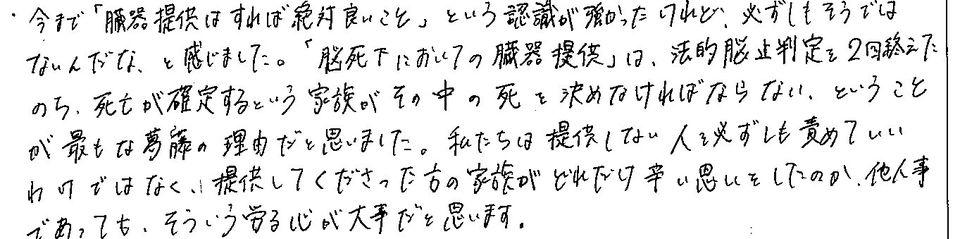 ・今まで「臓器提供はすれば絶対良いこと」という認識が強かったけれど、必ずしもそうでは
ないんだな、と感じました。「脳死下においての臓器提供」は、法的脳死判定を2回終えた
のち、死亡が確定するという家族がその中の死を決めなければならない、ということ
が最もな葛藤の理由だと思いました。私たちは提供しない人を必ずしも責めていい
わけではなく、提供してくださった方の家族がどれだけ辛い思いをしたのか、他人事
であっても、そういう労る心が大事だと思います。